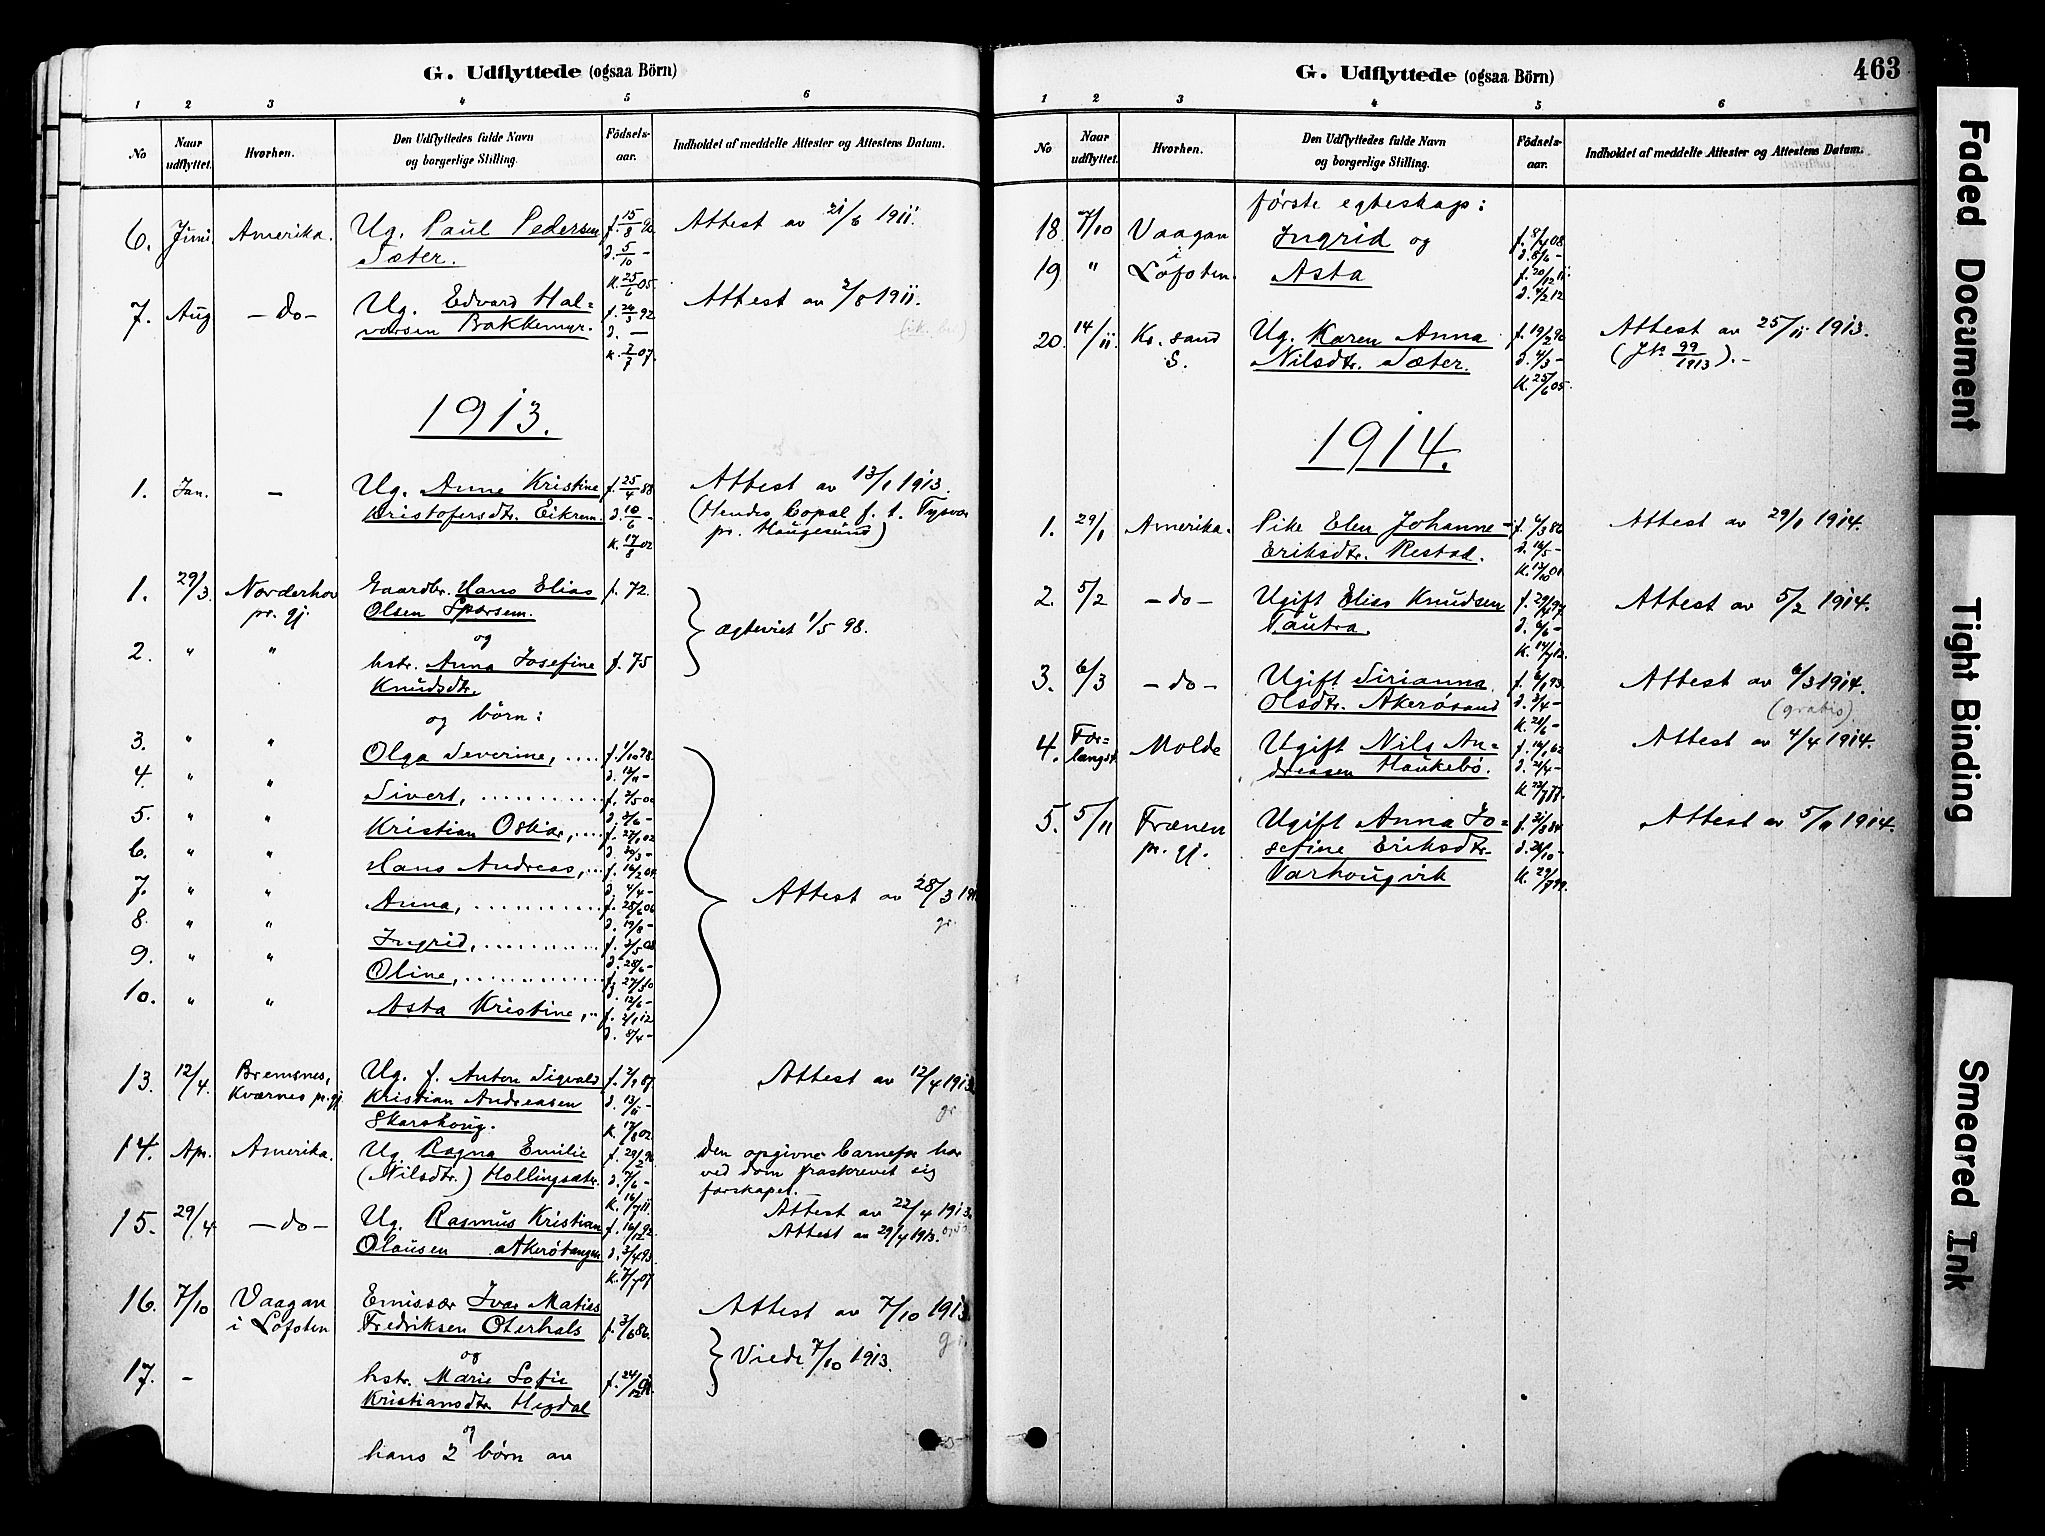 G. Udflyttede (ogsaa Börn)
1 2 3 4 5 6
No
Naar udflyttet.
Hvorhen.
Den Udflyttedes fulde Navn og borgerlige Stilling.
Födselsaar.
Indholdet af meddelte Attester og Attestens Datum.
6. Juni Amerika. Ug. Paul Pedersen
Sæter.
d. 5/10 -
K. 25/6 05.
Attest av 21/6 1911.
7. Aug - do - Ug. Edvard Hal=
vorsen Bakkemyr.
f. 26/3 92
d. —
K. 2/7 07.
Attest av 2/8 1911.
1913.
1. Jan. — Ug. Anne Kristine
Kristofersdtr. Eikrem.
f. 25/4 88
d. 10/6 -
K. 17/8 02
Attest av 13/1 1913.
(Hendes bopæl f. t. Tysvær
pr. Haugesund)
1. 29/3 Norderhov
pr. gj.
Gaardbr. Hans Elias
Olsen Sporsem.
f. 72.
og
2. " " hstr. Anna Josefine
Knudsdtr.
f. 75
ægteviet 1/5 98.
og börn:
3. " " Olga Severine, .... f. 1/10 98.
d. 12/11 -
4. " " Sivert, .......... f. 2/5 00
d. 2/6 -
5. " " Kristian Oskar, .... f. 27/1 02
d. 29/3 -
6. " " Hans Andreas, ... f. 16/2 04.
d. 4/4 -
7. " " Anna, .......... f. 28/6 06
d. 19/8 -
8. " " Ingrid, .......... f. 3/5 08
d. 28/6 -
9. " " Oline, .......... f. 27/3 10
d. 12/6 -
10. " " Asta Kristine, .. f. 2/1 12
d. 8/4 -
Attest av 28/3
gr.
13. 12/4 Bremsnes,
Kværnes pr. gj.
Ug. f. Anton Sigvald
Kristian Andreasen
Skarshoug.
f. 2/9 87
d. 13/11 -
K. 17/8 02
Attest av 12/4 1913
gr.
14. Apr. Amerika. Ug Ragna Emilie
(Nilsdtr.) Hollingsætr.
f. 29/2 96
d. 7/6 -
K. 16/7 11.
Den opgivne barnefar har
ved dom fraskrevet sig
farskapet.
Attest av 22/4 1913.
15. 29/4 - do - Ug. Rasmus Kristian
Olausen Akerötangen
f. 16/12 92
d. 3/4 93
K. 7/7 07
Attest av 29/4 1913.
16. 7/10 Vaagan
i Lofoten
Emissær Ivar Matias
Fredriksen Oterhals
f. 3/6 86.
Attest av 7/10 1913
gr.
og
Viede 7/10 1913.
17. - hstr. Marie Sofie
Kristiansdtr Hegdal
og
hans 2 börn av
G. Udflyttede (ogsaa Börn)
463
1 2 3 4 5 6
No
Naar udflyttet.
Hvorhen.
Den Udflyttedes fulde Navn og borgerlige Stilling.
Födselsaar.
Indholdet af meddelte Attester og Attestens Datum.
første egteskap:
18. 7/10 Vaagan Ingrid og
f. 8/4 08
d. 8/6 -
i
19 " Lofoten. Asta
f. 20/12 11.
d. 4/2 12.
20. 14/11 Kr. sand
S.
Ug. Karen Anna
Nilsdtr. Sæter.
f. 19/2 90
d. 4/3 -
K. 25/6 05.
Attest av 25/11 1913.
(JNo 99/1913). -
1914.
1. 29/1 Amerika. Pike Elen Johanne
Eriksdtr. Restad.
f. 4/3 86
d. 16/5 -
K. 13/10 01.
Attest av 29/1 1914.
2. 5/2 - do - Ugift Elias Knudsen
Tautra.
f. 29/4 97
d. 6/6 -
K. 14/7 12.
Attest av 5/2 1914.
3. 6/3 - do - Ugift Sirianna
Olsdtr. Akerösand
f. 6/1 93.
d. 3/4 -
Attest av 6/3 1914.
(gratis)
4. For=
længst.
Molde Ugift Nils An=
dreasen Haukebö.
f. 16/1 62
d. 21/4 -
Attest av 4/4 1914.
5. 5/11 Frænen
pr. gj.
Ugift Anna Jo=
sefine Eriksdtr.
Varhougvik
f. 31/8 84
d. 26/10 -
K. 29/7 99.
Attest av 5/11 1914.
Faded Document
Tight Binding
Smeared Ink